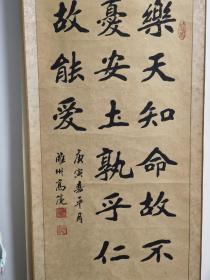 樂天知命故不
憂安土孰乎仁
故能愛
庚寅春平月
雎州高院